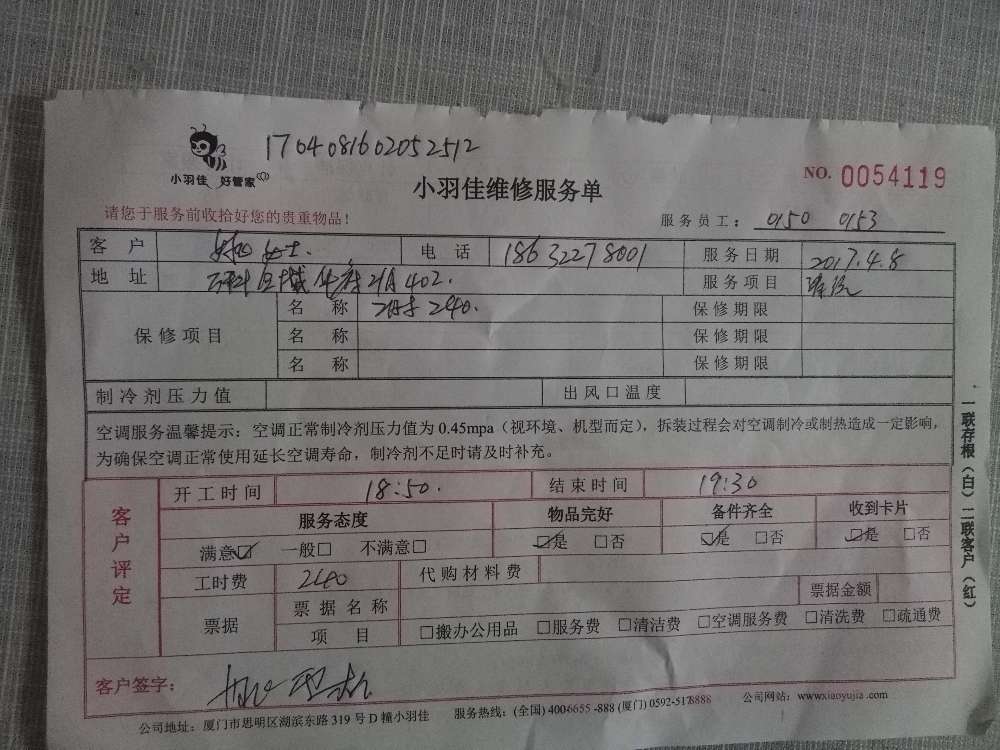 1704081602052512
小羽佳 好管家
小羽佳维修服务单
NO. 0054119
请您于服务前收拾好您的贵重物品!
服务员工: 0150 0153
客户 女士. 电话 18632278001 服务日期 2017.4.8
地址 21A 402. 服务项目 清洗
保修项目 名称 240. 保修期限
名称 保修期限
名称 保修期限
制冷剂压力值 出风口温度
空调服务温馨提示: 空调正常制冷剂压力值为 0.45mpa(视环境、机型而定),拆装过程会对空调制冷或制热造成一定影响,
为确保空调正常使用延长空调寿命,制冷剂不足时请及时补充。
客户评定
开工时间 18:50. 结束时间 19:30
服务态度 物品完好 备件齐全 收到卡片
满意☑ 一般□ 不满意□ ☑是 □否 ☑是 □否 ☑是 □否
工时费 240 代购材料费
票据 票据名称 票据金额
项目 □搬办公用品 □服务费 □清洁费 □空调服务费 □清洗费 □疏通费
客户签字:
公司地址: 厦门市思明区湖滨东路 319 号 D 幢小羽佳 服务热线: (全国) 4006655-888 (厦门) 0592-5178888 公司网站: www.xiaoyujia.com
一联存根(白) 二联客户(红)